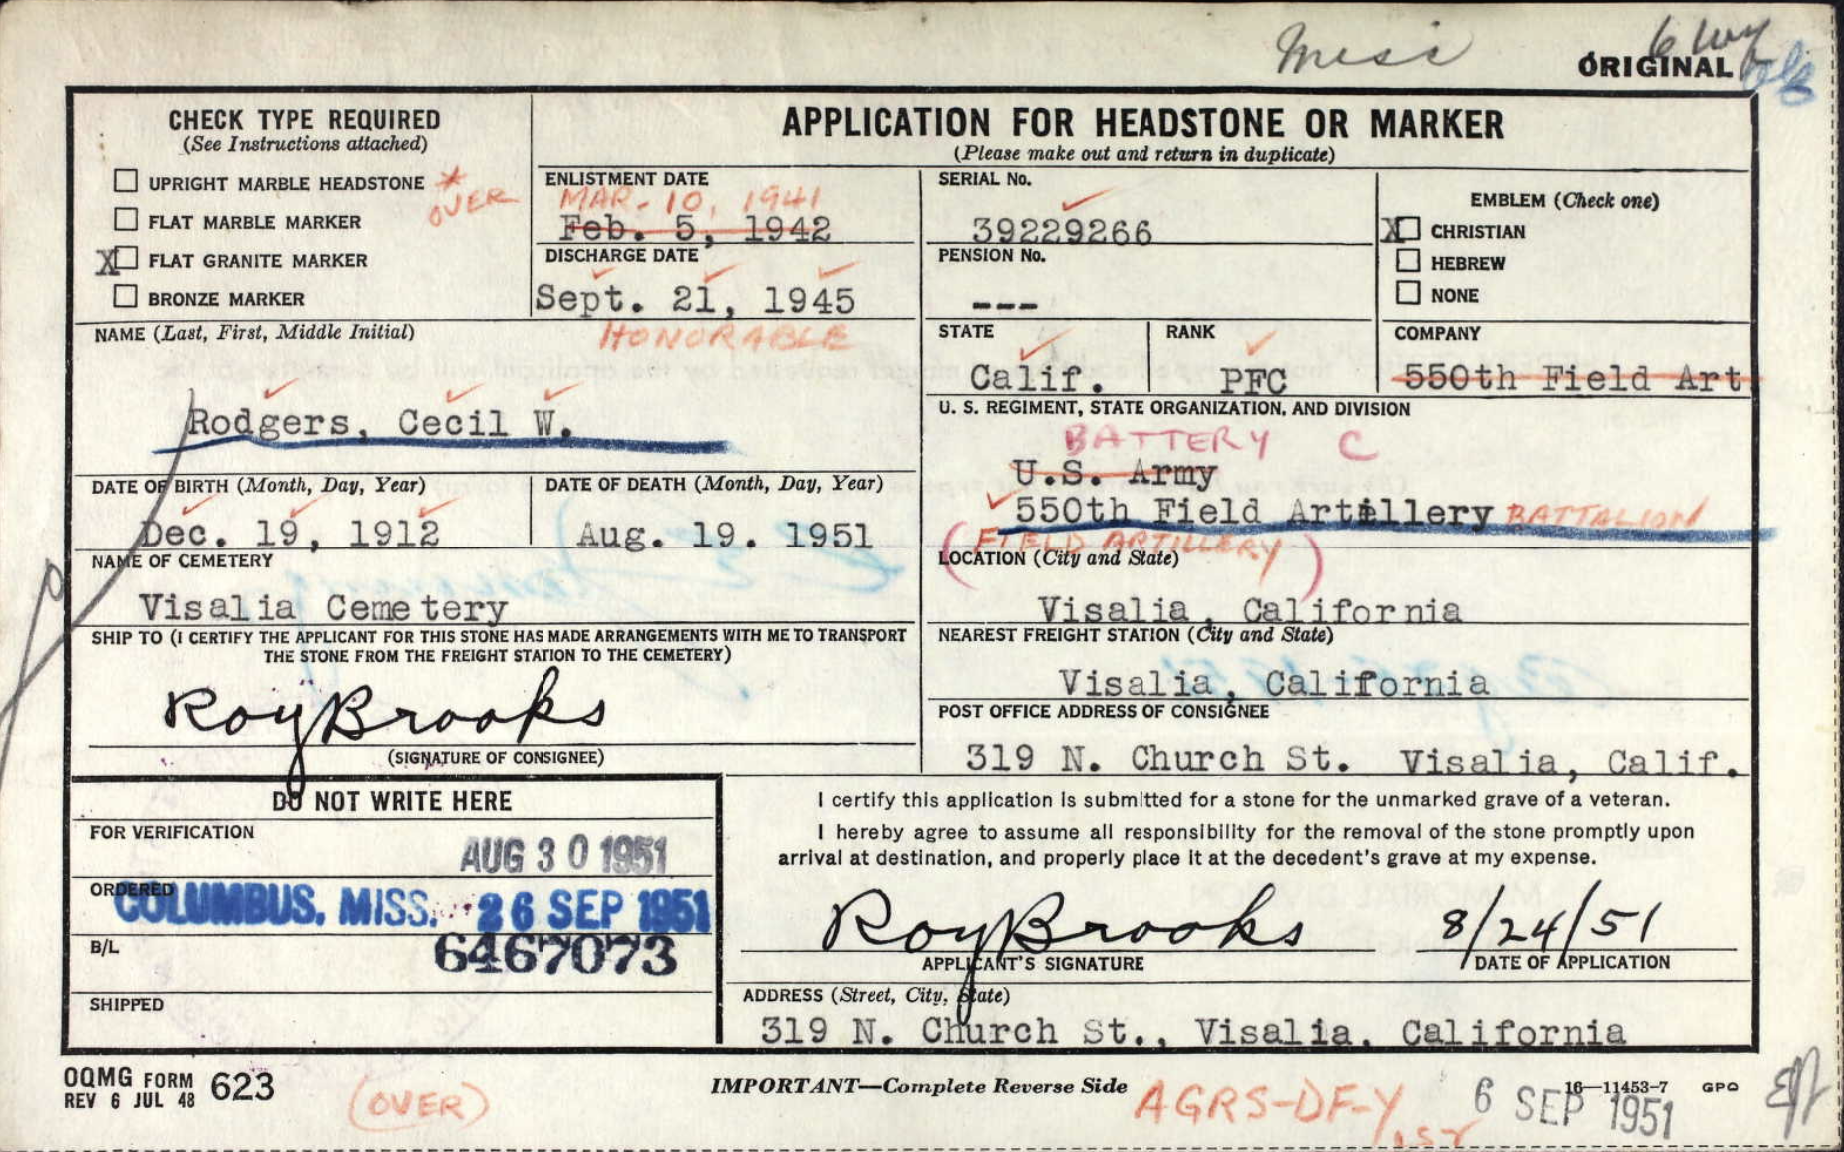 Miss
6 
ORIGINAL
CHECK TYPE REQUIRED
(See Instructions attached)
UPRIGHT MARBLE HEADSTONE *
OVER
FLAT MARBLE MARKER
X FLAT GRANITE MARKER
BRONZE MARKER
APPLICATION FOR HEADSTONE OR MARKER
(Please make out and return in duplicate)
ENLISTMENT DATE
MAR. 10, 1941
Feb. 5, 1942
DISCHARGE DATE
Sept. 21, 1945
HONORABLE
SERIAL No.
39229266
PENSION No.
---
EMBLEM (Check one)
X CHRISTIAN
HEBREW
NONE
NAME (Last, First, Middle Initial)
Rodgers, Cecil W.
STATE
Calif.
RANK
PFC
COMPANY
550th Field Art
U. S. REGIMENT, STATE ORGANIZATION, AND DIVISION
BATTERY C
U.S. Army
550th Field Artillery BATTALION
(FIELD ARTILLERY)
DATE OF BIRTH (Month, Day, Year)
Dec. 19, 1912
DATE OF DEATH (Month, Day, Year)
Aug. 19. 1951
NAME OF CEMETERY
Visalia Cemetery
LOCATION (City and State)
Visalia, California
SHIP TO (I CERTIFY THE APPLICANT FOR THIS STONE HAS MADE ARRANGEMENTS WITH ME TO TRANSPORT
THE STONE FROM THE FREIGHT STATION TO THE CEMETERY)
Roy Brooks
(SIGNATURE OF CONSIGNEE)
NEAREST FREIGHT STATION (City and State)
Visalia, California
POST OFFICE ADDRESS OF CONSIGNEE
319 N. Church St. Visalia, Calif.
DO NOT WRITE HERE
FOR VERIFICATION
AUG 30 1951
ORDERED
COLUMBUS, MISS. 26 SEP 1951
B/L
6467073
SHIPPED
I certify this application is submitted for a stone for the unmarked grave of a veteran.
I hereby agree to assume all responsibility for the removal of the stone promptly upon
arrival at destination, and properly place it at the decedent's grave at my expense.
Roy Brooks 8/24/51
APPLICANT'S SIGNATURE DATE OF APPLICATION
ADDRESS (Street, City, State)
319 N. Church St., Visalia, California
OQMG FORM 623
REV 6 JUL 48
(OVER)
IMPORTANT—Complete Reverse Side
AGRS-DF-Y
16—11453-7 GPO
6 SEP 1951